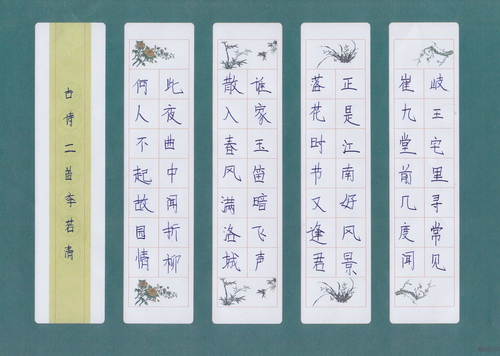 岐王宅里寻常见
崔九堂前几度闻
正是江南好风景
落花时节又逢君
谁家玉笛暗飞声
散入春风满洛城
此夜曲中闻折柳
何人不起故园情
古诗二首李若清